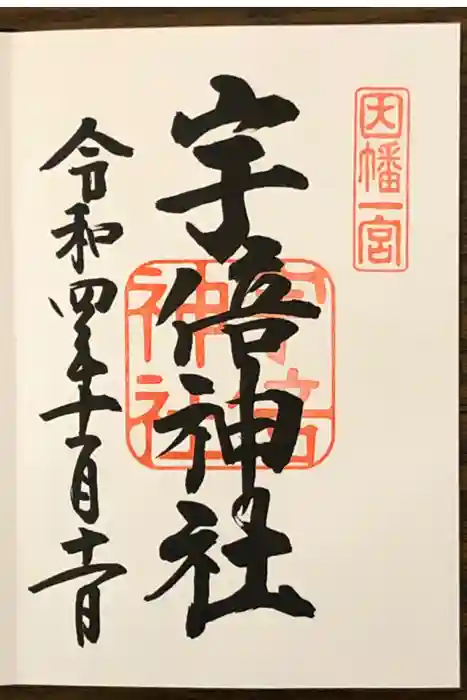 因幡一宮
宇倍神社
宇倍神社
令和四年十一月十一日